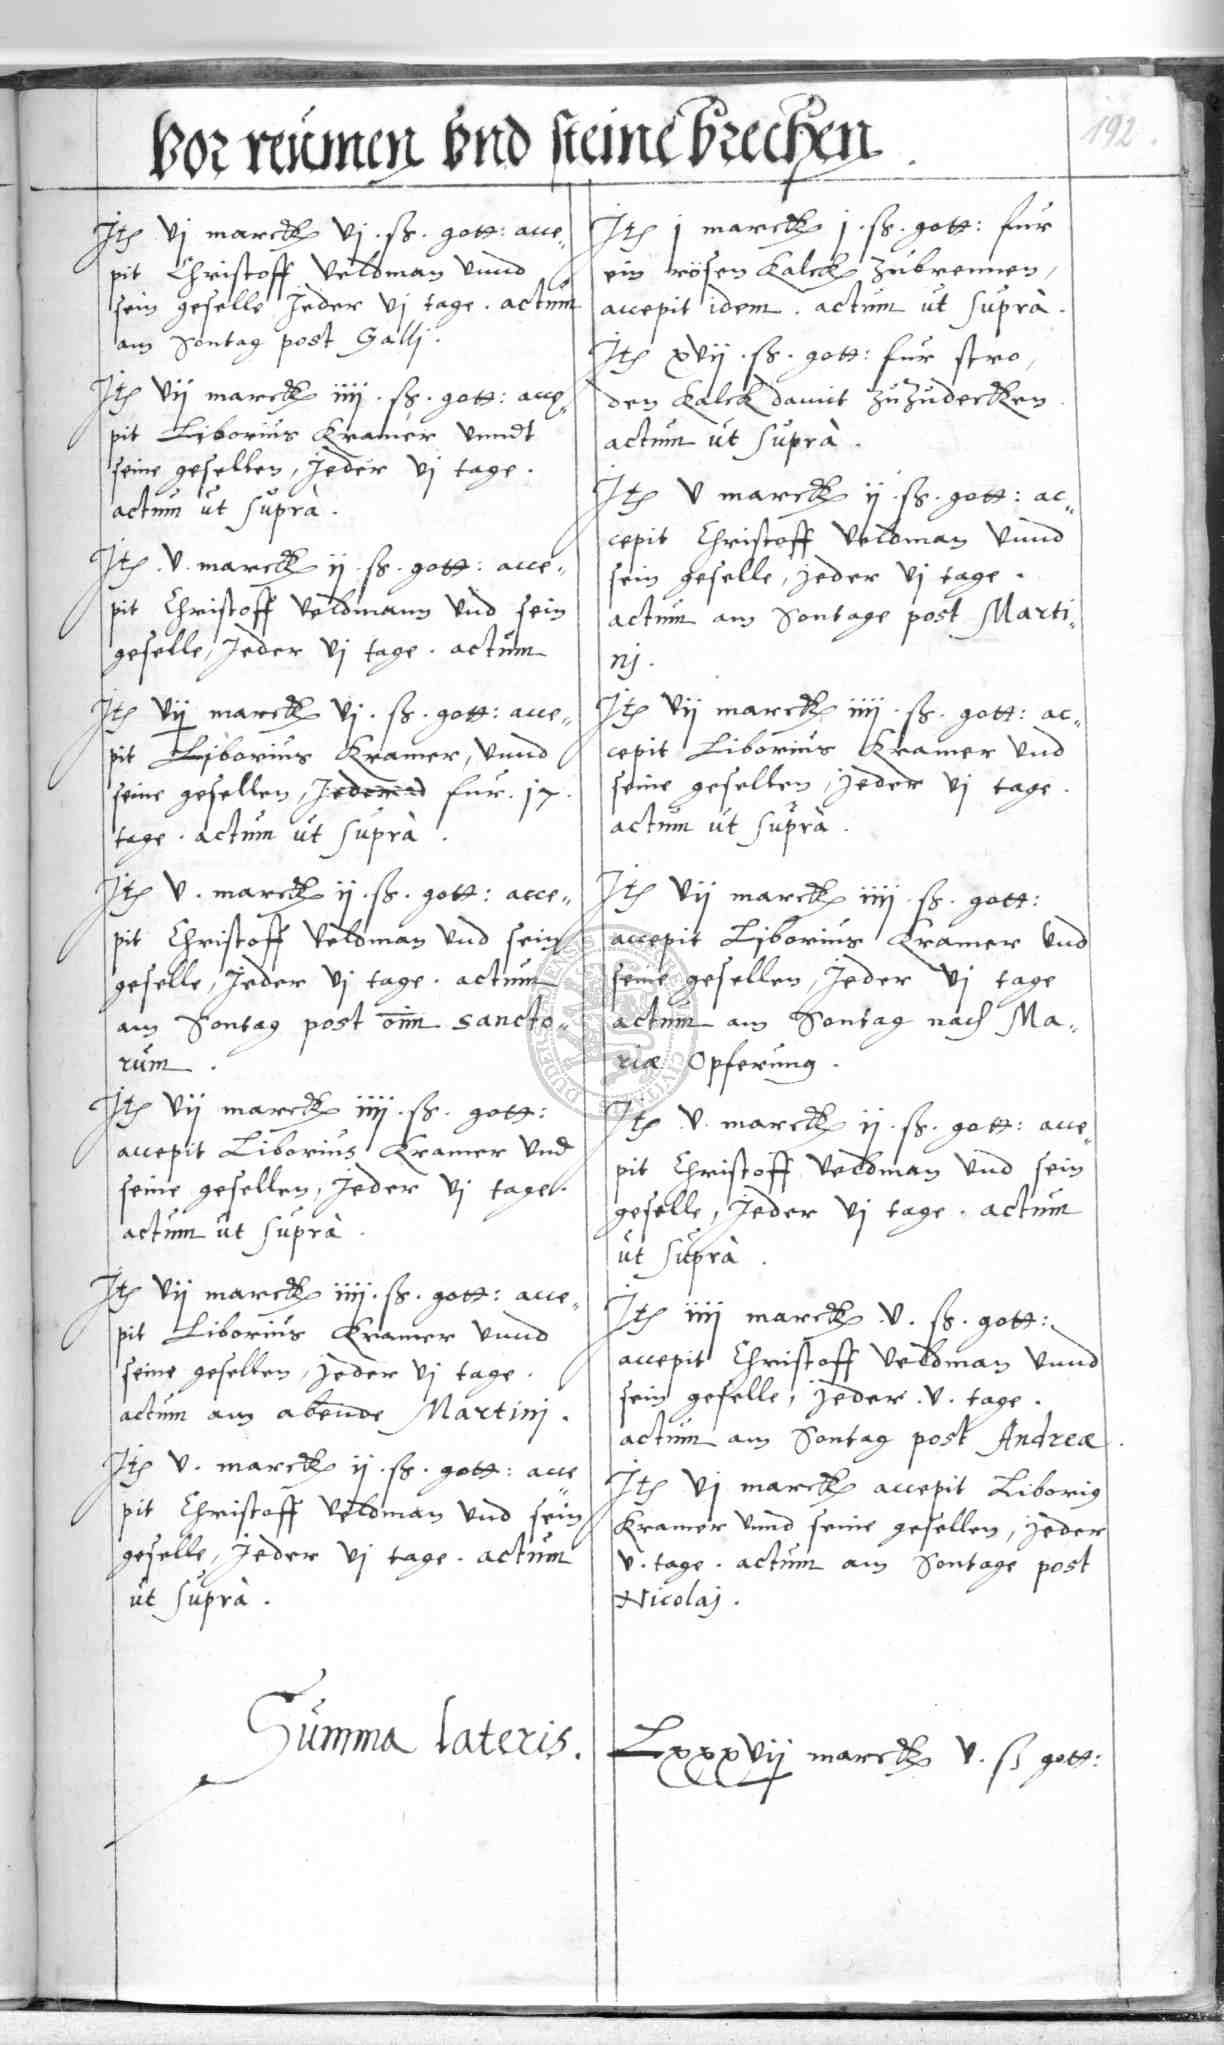 192.
Vor reumen vnd steine brechen.
Itē vj marckꝫ vj . sß. gott: acce„
pit Christoff Veldman vnnd
sein geselle Jeder vj tage . actum
am Sontag post Gallj.
Itē vij marckꝫ iiij . sß. gott: acce„
pit Liborius Kramer vnndt
seine gesellen, Jeder vj tage.
actum ut suprà.
Itē .v. marckꝫ ij . sß. gott: acce„
pit Christoff Veldmann vnd sein
geselle, Jeder vj tage . actum
Itē vij marckꝫ vj . sß. gott: acce„
pit Liborius Kramer, vnnd
seine gesellen, fur . 17.
tage . actum ut suprà.
Itē v. marckꝫ ij . sß. gott: acce„
pit Christoff Veldman vnd sein
geselle, Jeder vj tage . actum
am Sontag post oīm sancto„
rum.
Itē vij marckꝫ iiij . sß. gott:
accepit Liborius Kramer vnd
seine gesellen, Jeder vj tage.
actum ut suprà.
Itē vij marckꝫ iiij . sß. gott: acce„
pit Liborius Kramer vnnd
seine gesellen, Jeder vj tage.
actum am abende Martinj.
Itē v. marckꝫ ij . sß. gott: acce„
pit Christoff Veldman vnd sein
geselle, Jeder vj tage . actum
ut suprà.
Itē j marckꝫ j . sß. gott: fur
ein rösen Kalck zubrennen,
accepit idem . actum ut suprà.
Itē xvij . sß. gott: fur stro,
den Kalck damit zuzudecken.
actum ut suprà.
Itē v marckꝫ ij . sß. gott: ac„
cepit Christoff Veldman vnnd
sein geselle, Jeder vj tage.
actum am Sontage post Marti„
nj.
Itē vij marckꝫ iiij . sß. gott: ac„
cepit Liborius Kramer vnd
seine gesellen, Jeder vj tage.
actum ut suprà.
Itē vij marckꝫ iiij . sß. gott:
accepit Liborius Kramer vnd
seine gesellen, Jeder vj tage
actum am Sontag nach Ma„
riæ Opferung.
Itē .v. marckꝫ ij . sß. gott: acce„
pit Christoff Veldman vnd sein
geselle, Jeder vj tage . actum
ut suprà.
Itē iiij marckꝫ .v. sß. gott:
accepit Christoff Veldman vnnd
sein geselle, Jeder .v. tage.
actum am Sontag post Andreæ.
Itē vj marckꝫ accepit Liborig
Kramer vnnd seine gesellen, Jeder
v. tage . actum am Sontage post
Nicolaj.
Summa lateris. Lxxxvij marckꝫ v. sß gott: